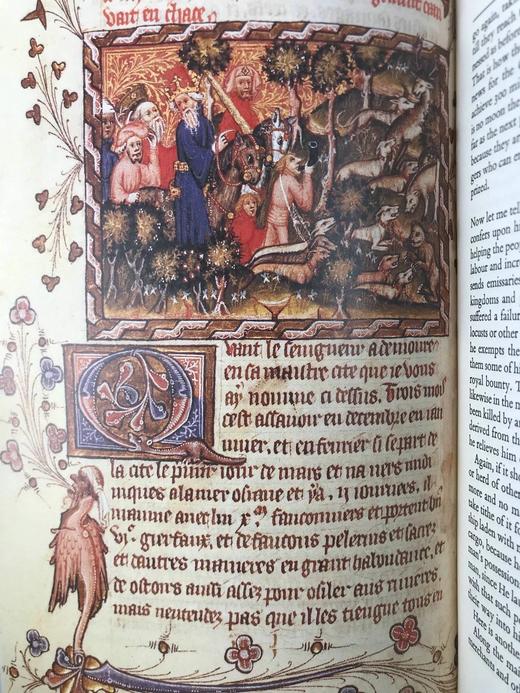 vait en chace
Vant le seingneur a demoure
en sa maistre cite que ie vous
ay nomme ci dessus. Trois mois
cest assavoir en decembre en ian
uier, et en fevrier si se part de
la cite le premier iour de mars et na vers midi
iusques a la mer osiane et y a .ij. iournees, il
maine avec lui .x. fauconniers et portent bn
gierfaux, et de faucons pelerins et sacrez
et dautres manieres en grant habundance, et
de ostoirs aussi assez pour oisler aus rivieres.
mais nentendez pas que il les tiengne tous en
go again, tak
till they reach
nessed as before
That is how th
news for the
achieve 300 mi
is no moon tha
far as the next
because they ar
gers who can e
prized.
Now let me tel
confers upon hi
helping the peo
labour and incre
sends emissaries
kingdoms and
suffered a failur
locusts or other
he exempts the
them some of hi
royal bounty. T
likewise in the n
been killed by an
derived from th
he relieves him
Again, if it shou
or herd of othe
more and no m
take tithe of it fo
ship laden with
cargo, because he
man's possession
man, since He la
with that such p
their way into hi
Here is anothe
Along the mai
merchants and o